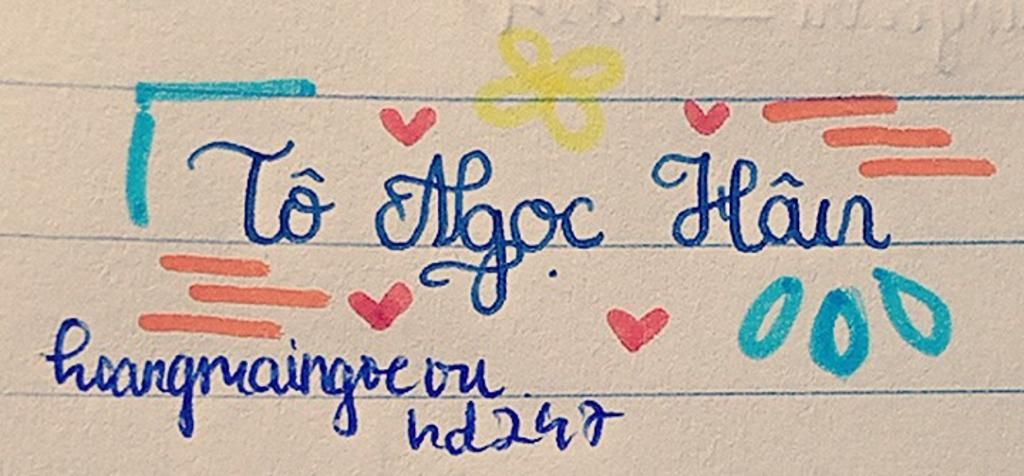 Tô Ngọc Hân
hoangmaingocvu
hd247